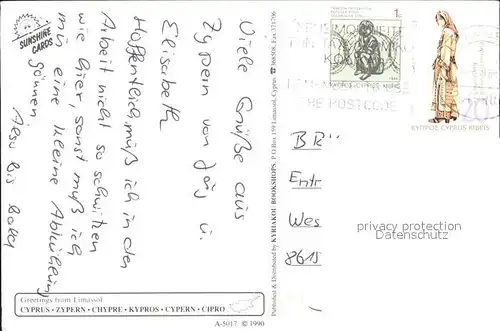 SUNSHINE CARDS
Viele Grüße aus
Zypern von Jörg u.
Elisabeth
Hoffentlich muß ich in der
Arbeit nicht so schwitzen
wie hier sonst muß ich
mir eine kleine Abkühlung
gönnen.
Also bis bald
Greetings from Limassol
CYPRUS · ZYPERN · CHYPRE · KYPROS · CYPERN · CIPRO
A-5017 © 1990
Published & Distributed by KYRIAKOU BOOKSHOPS, P.O.Box 159 Limassol, Cyprus ☎ 368508, Fax: 371706
1c
ΚΥΠΡΟΣ CYPRUS KIBRIS
20c
ΚΥΠΡΟΣ CYPRUS KIBRIS
THE POSTCODE
BR
Entr
Wes
8615
privacy protection
Datenschutz